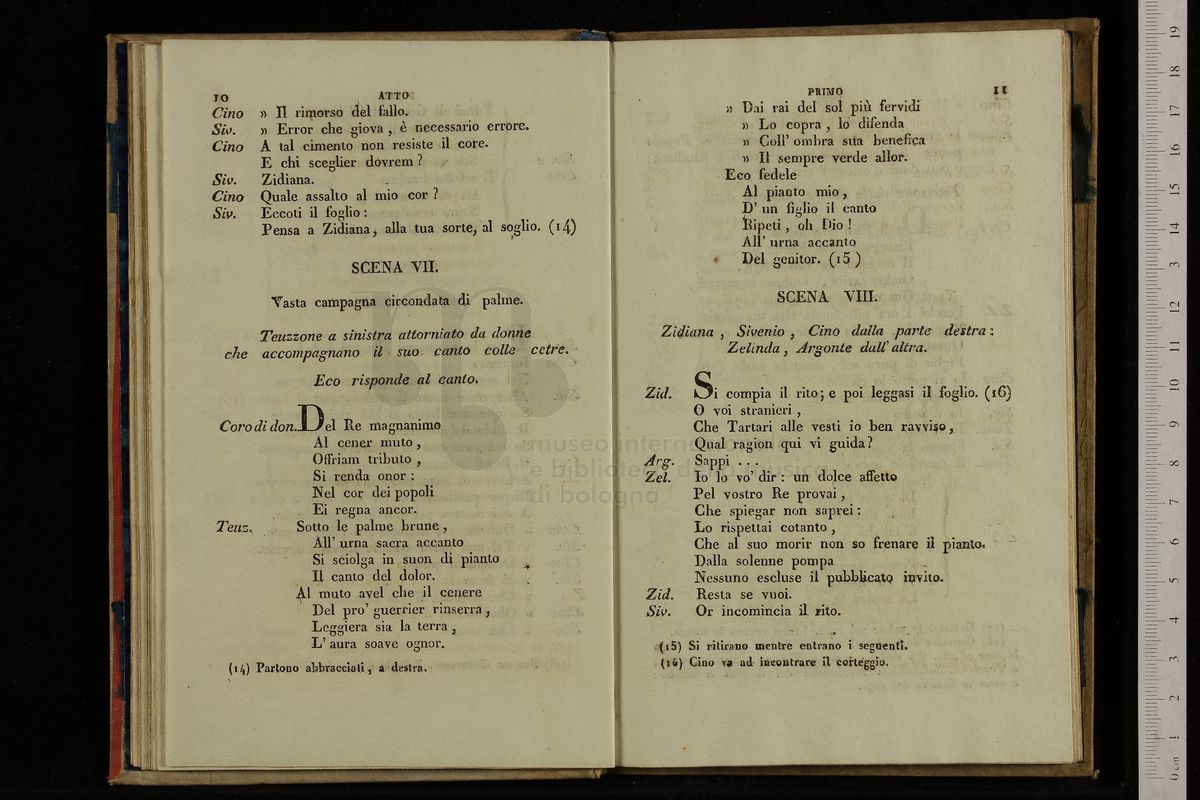 10
ATTO
Cino » Il rimorso del fallo.
Siv. » Error che giova , è necessario errore.
Cino A tal cimento non resiste il core.
E chi sceglier dovrem ?
Siv. Zidiana.
Cino Quale assalto al mio cor ?
Siv. Eccoti il foglio :
Pensa a Zidiana, alla tua sorte, al soglio. (14)
SCENA VII.
Vasta campagna circondata di palme.
Teuzzone a sinistra attorniato da donne
che accompagnano il suo canto colle cetre.
Eco risponde al canto.
Coro di don. Del Re magnanimo
Al cener muto ,
Offriam tributo ,
Si renda onor :
Nel cor dei popoli
Ei regna ancor.
Teuz. Sotto le palme brune ,
All' urna sacra accanto
Si sciolga in suon di pianto
Il canto del dolor.
Al muto avel che il cenere
Del pro' guerrier rinserra ,
Leggiera sia la terra ,
L' aura soave ognor.
(14) Partono abbracciati , a destra.
PRIMO
11
» Dai rai del sol più fervidi
» Lo copra , lo difenda
» Coll' ombra sua benefica
» Il sempre verde allor.
Eco fedele
Al pianto mio ,
D' un figlio il canto
Ripeti , oh Dio !
All' urna accanto
Del genitor. (15 )
SCENA VIII.
Zidiana , Sivenio , Cino dalla parte destra :
Zelinda , Argonte dall' altra.
Zid. Si compia il rito; e poi leggasi il foglio. (16)
O voi stranieri ,
Che Tartari alle vesti io ben ravviso,
Qual ragion qui vi guida?
Arg. Sappi . . .
Zel. Io lo vo' dir : un dolce affetto
Pel vostro Re provai ,
Che spiegar non saprei :
Lo rispettai cotanto ,
Che al suo morir non so frenare il pianto.
Dalla solenne pompa
Nessuno escluse il pubblicato invito.
Zid. Resta se vuoi.
Siv. Or incomincia il rito.
(15) Si ritirano mentre entrano i seguenti.
(16) Cino va ad incontrare il corteggio.
museo internazionale
e biblioteca della musica
di bologna
0 cm 1 2 3 4 5 6 7 8 9 10 11 12 13 14 15 16 17 18 19